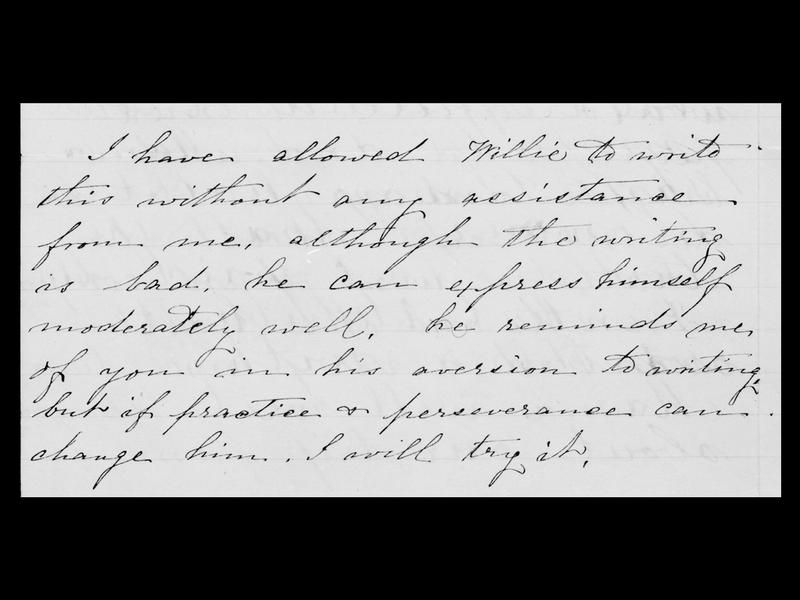 I have allowed Willie to write
this without any assistance
from me, although the writing
is bad, he can express himself
moderately well, he reminds me
of you in his aversion to writing,
but if practice & perseverance can
change him. I will try it,